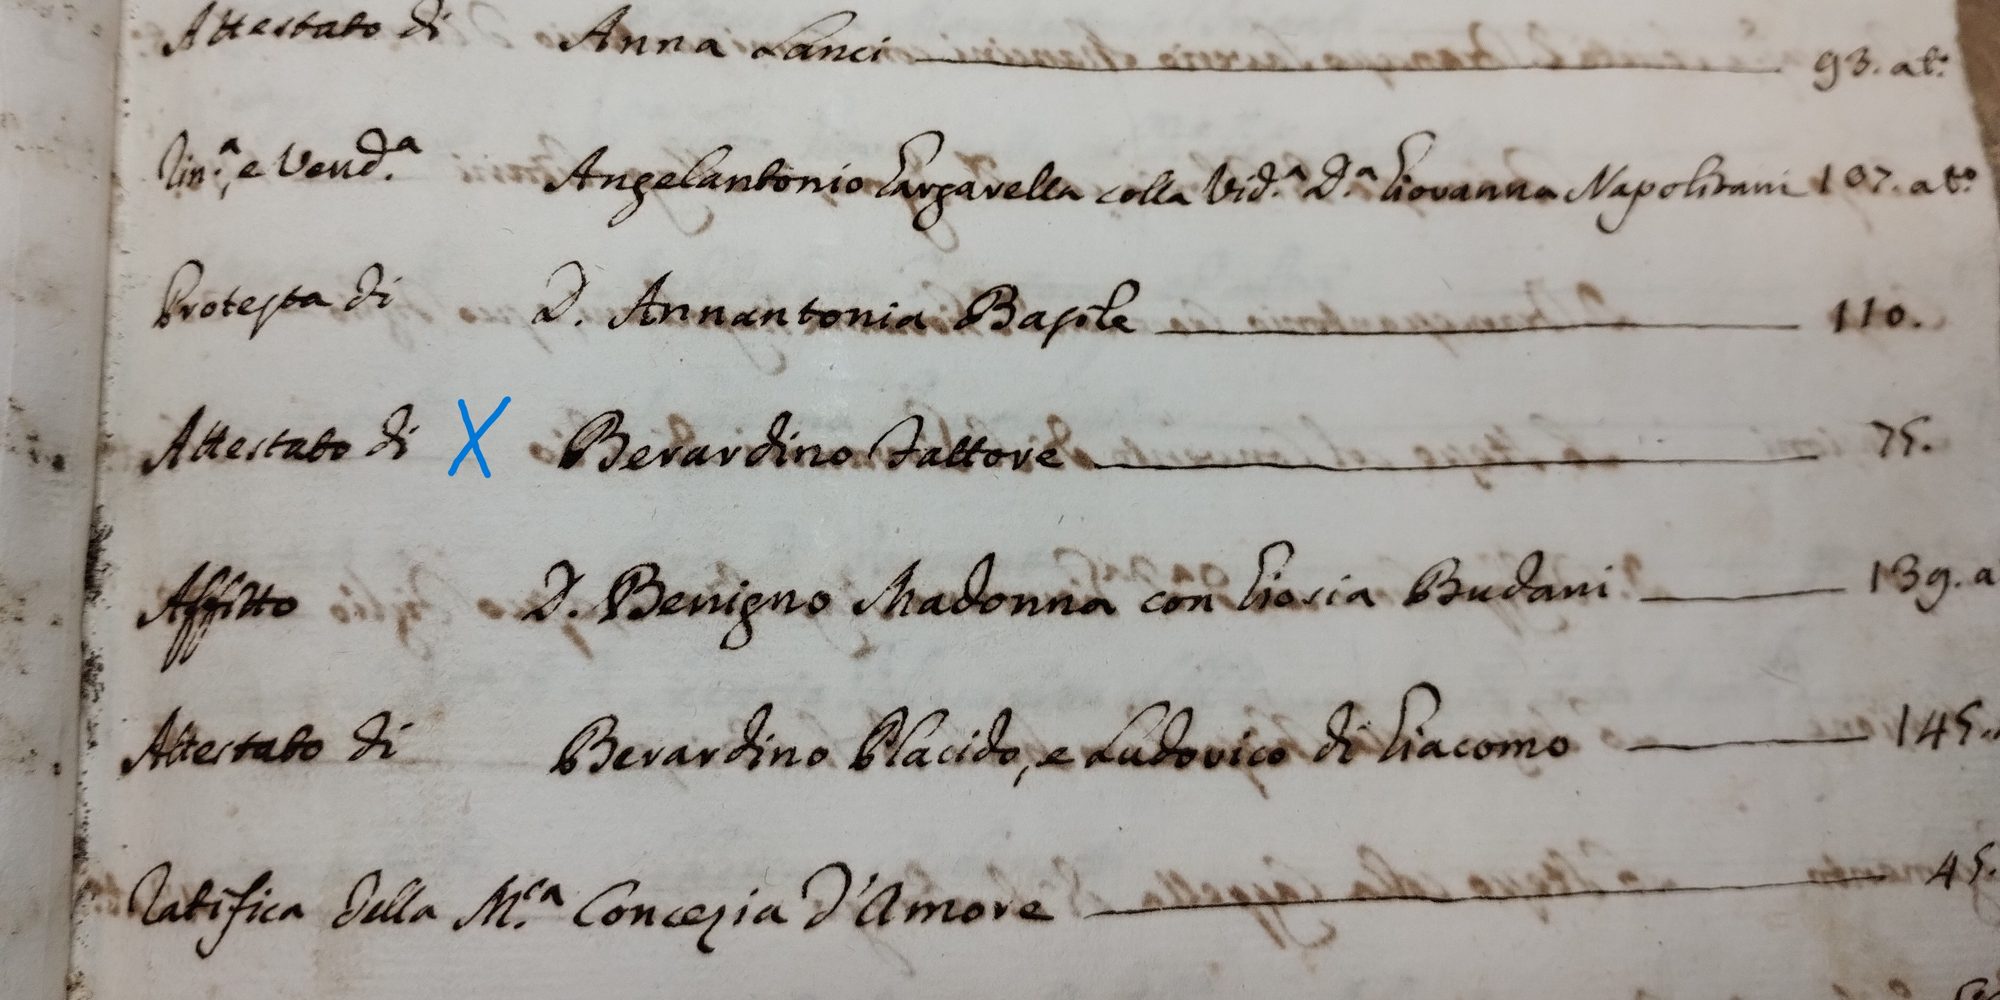 Attestato di Anna Lanci 93. at.º
Rin.ª, e Vend.ª Angelantonio Gargarella colla Vid.ª D.ª Giovanna Napolitani 107. at.º
Protesta di D. Annantonia Basile 110.
Attestato di X Berardino Fattore 75.
Affitto D. Benigno Madonna con Giosia Budani 139. a
Attestato di Berardino Placido, e Ludovico di Giacomo 145.
Ratifica della M.ca Concezia D'Amore 45.